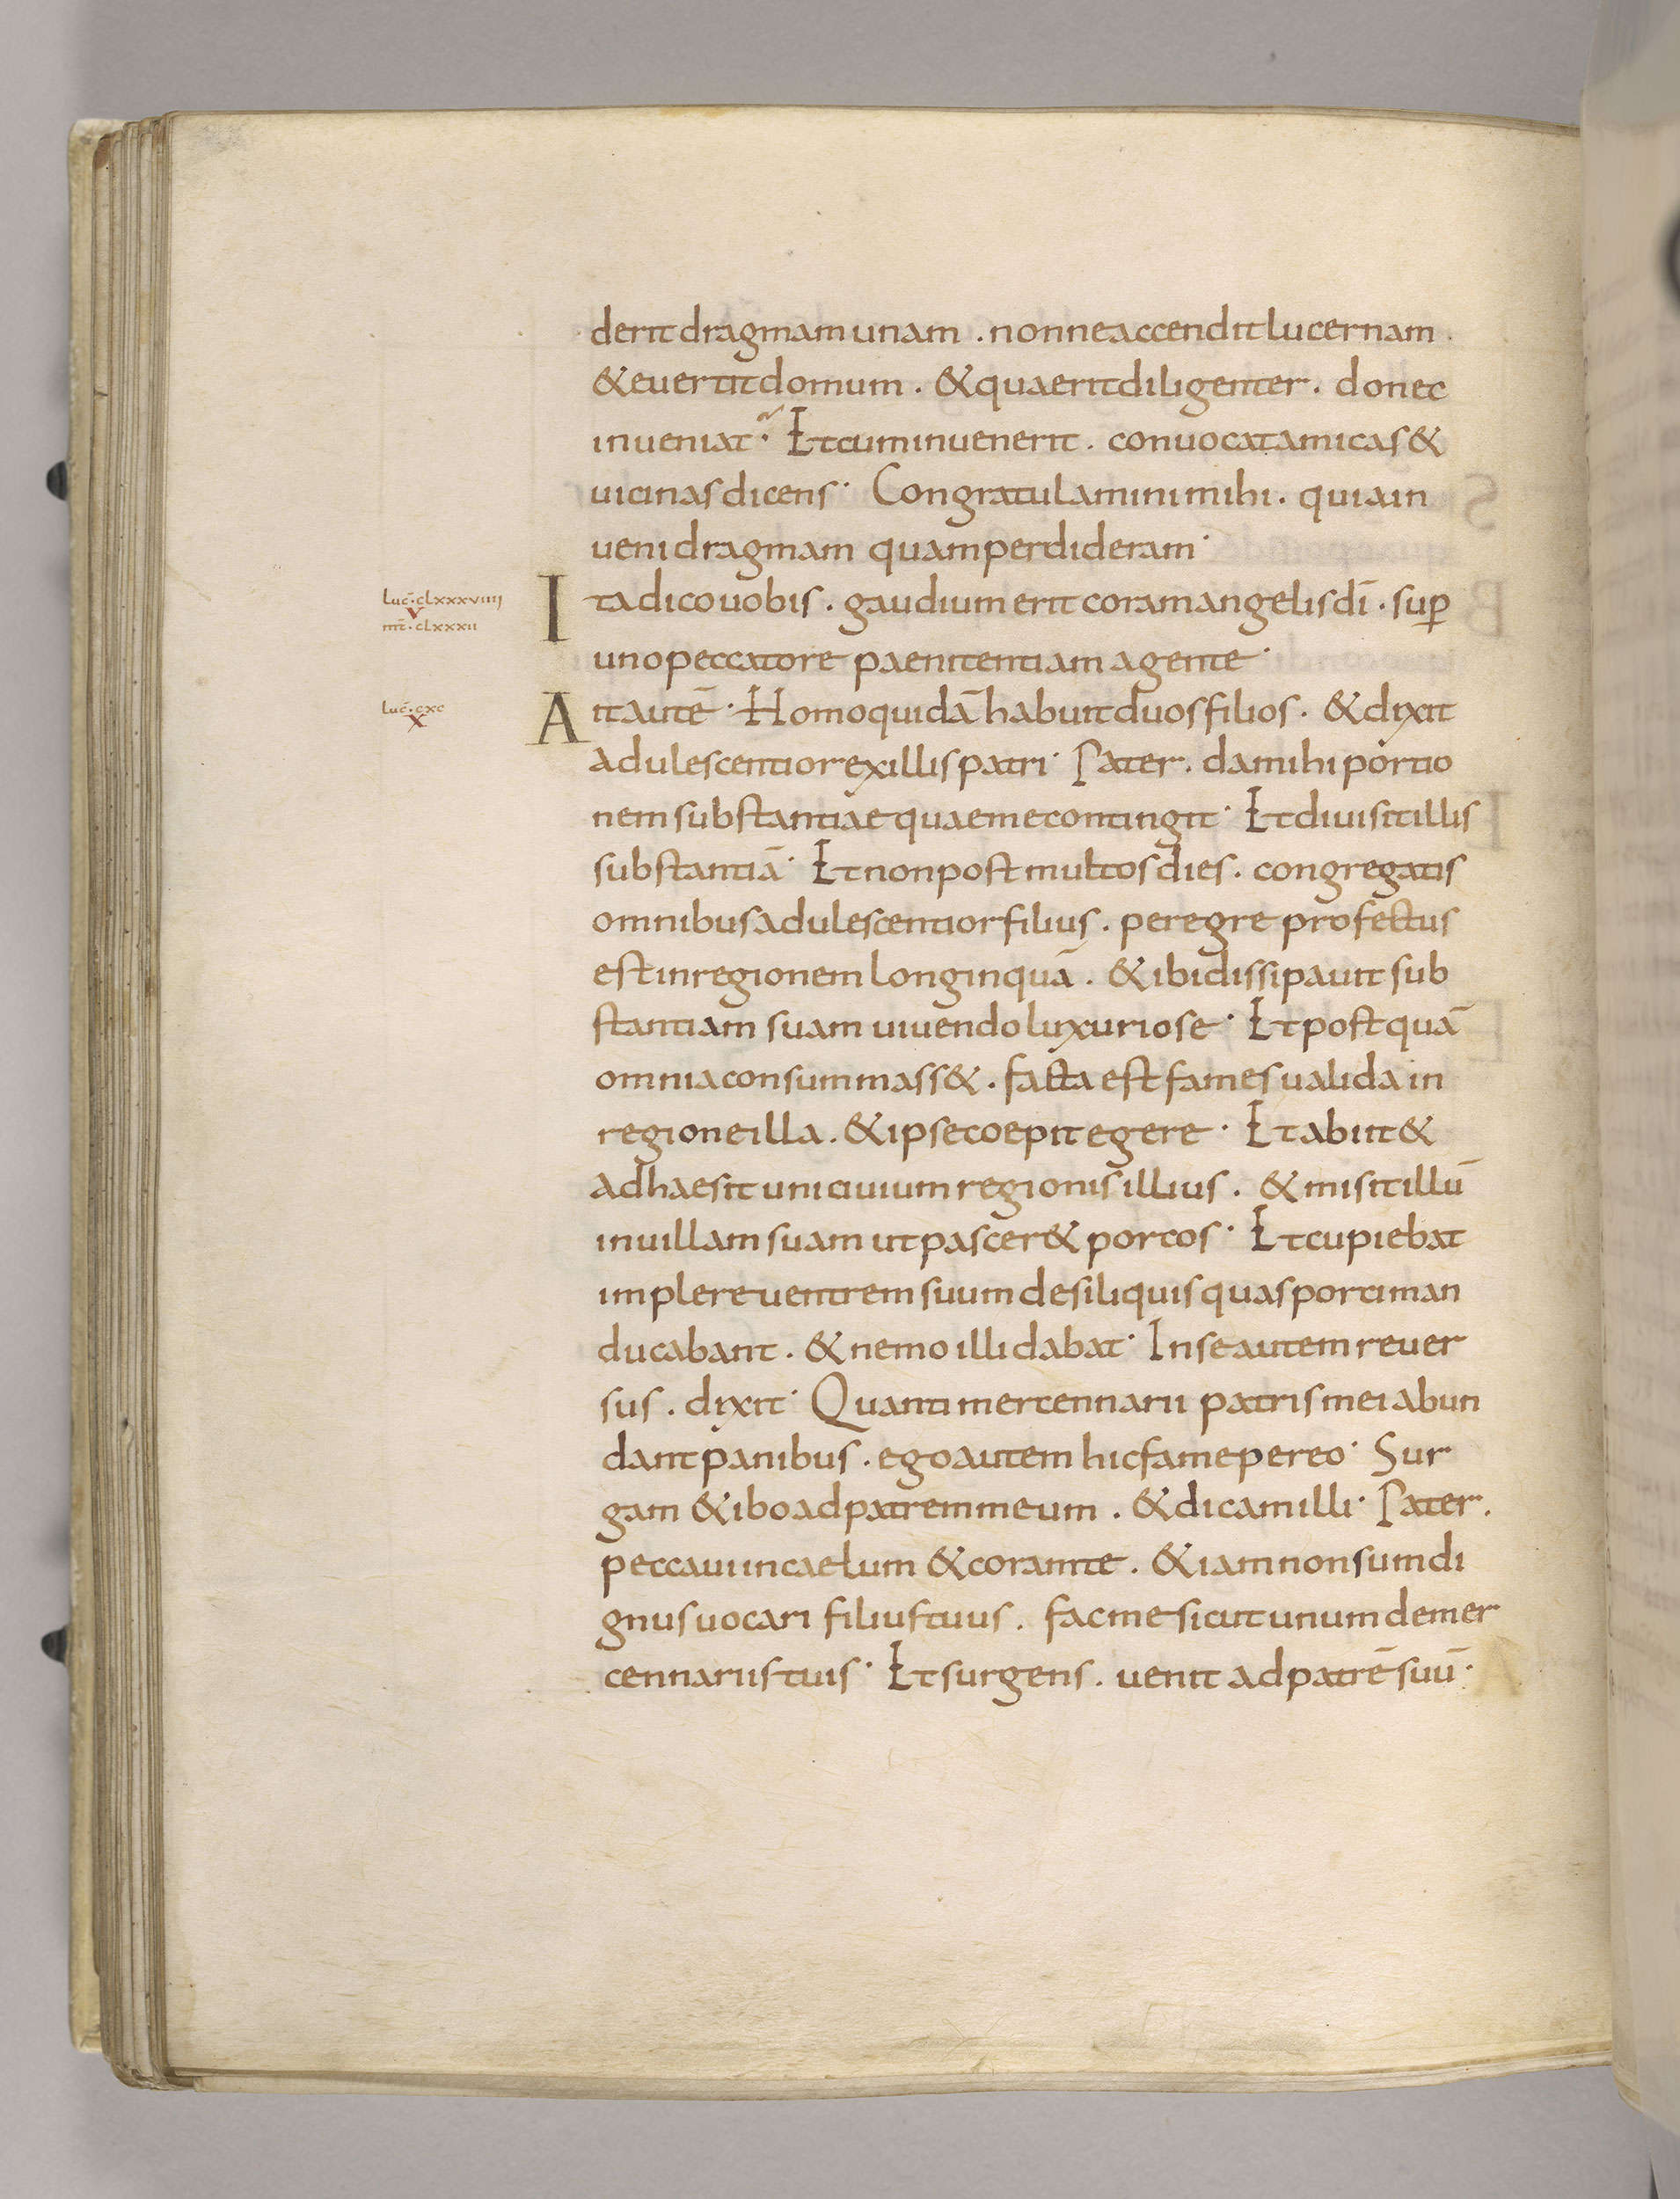 derit dragmam unam . nonne accendit lucernam .
& euertit domum . & quaerit diligenter . donec
inueniat . Et cum inuenerit . conuocat amicas &
uicinas dicens . Congratulamini mihi . quia in
ueni dragmam quam perdideram .
Luc̄ . clxxxviiii
v
mt̄ . clxxxii
Ita dico uobis . gaudium erit coram angelis dī . sup̄
uno peccatore paenitentiam agente .
Luc̄ . cxc
x
Ait autē . Homo quidā habuit duos filios . & dixit
adulescentior ex illis patri . Pater . da mihi portio
nem substantiae quae me contingit . Et diuisit illis
substantiā . Et non post multos dies . congregatis
omnibus adulescentior filius . peregre profectus
est in regionem longinquā . & ibi dissipauit sub
stantiam suam uiuendo luxuriose . Et postquā
omnia consummass& . facta est fames ualida in
regione illa . & ipse coepit egere . Et abiit &
adhaesit uni ciuium regionis illius . & misit illū
in uillam suam ut pascer& porcos . Et cupiebat
implere uentrem suum de siliquis quas porci man
ducabant . & nemo illi dabat . In se autem reuer
sus . dixit . Quanti mercennarii patris mei abun
dant panibus . ego autem hic fame pereo . Sur
gam & ibo ad patrem meum . & dicam illi . Pater .
peccaui in caelum & coram te . & iam non sum di
gnus uocari filius tuus . fac me sicut unum de mer
cennariis tuis . Et surgens . uenit ad patrē suū .